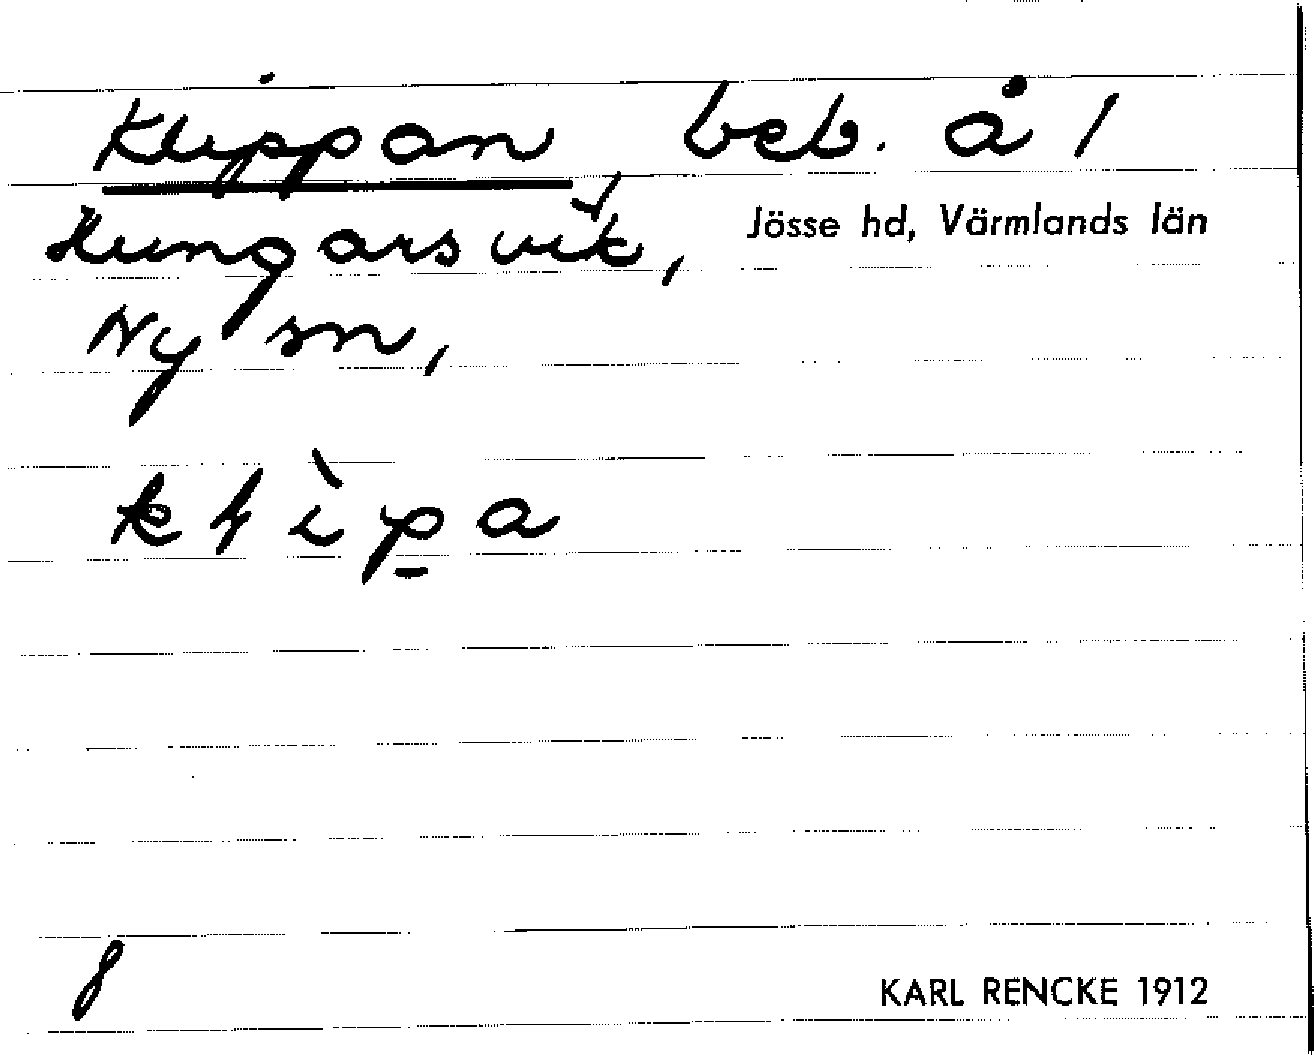 Klippan beb. å 1
Hungarsvik,
Jösse hd, Värmlands län
Ny sn,
kłìp̲a
8
KARL RENCKE 1912